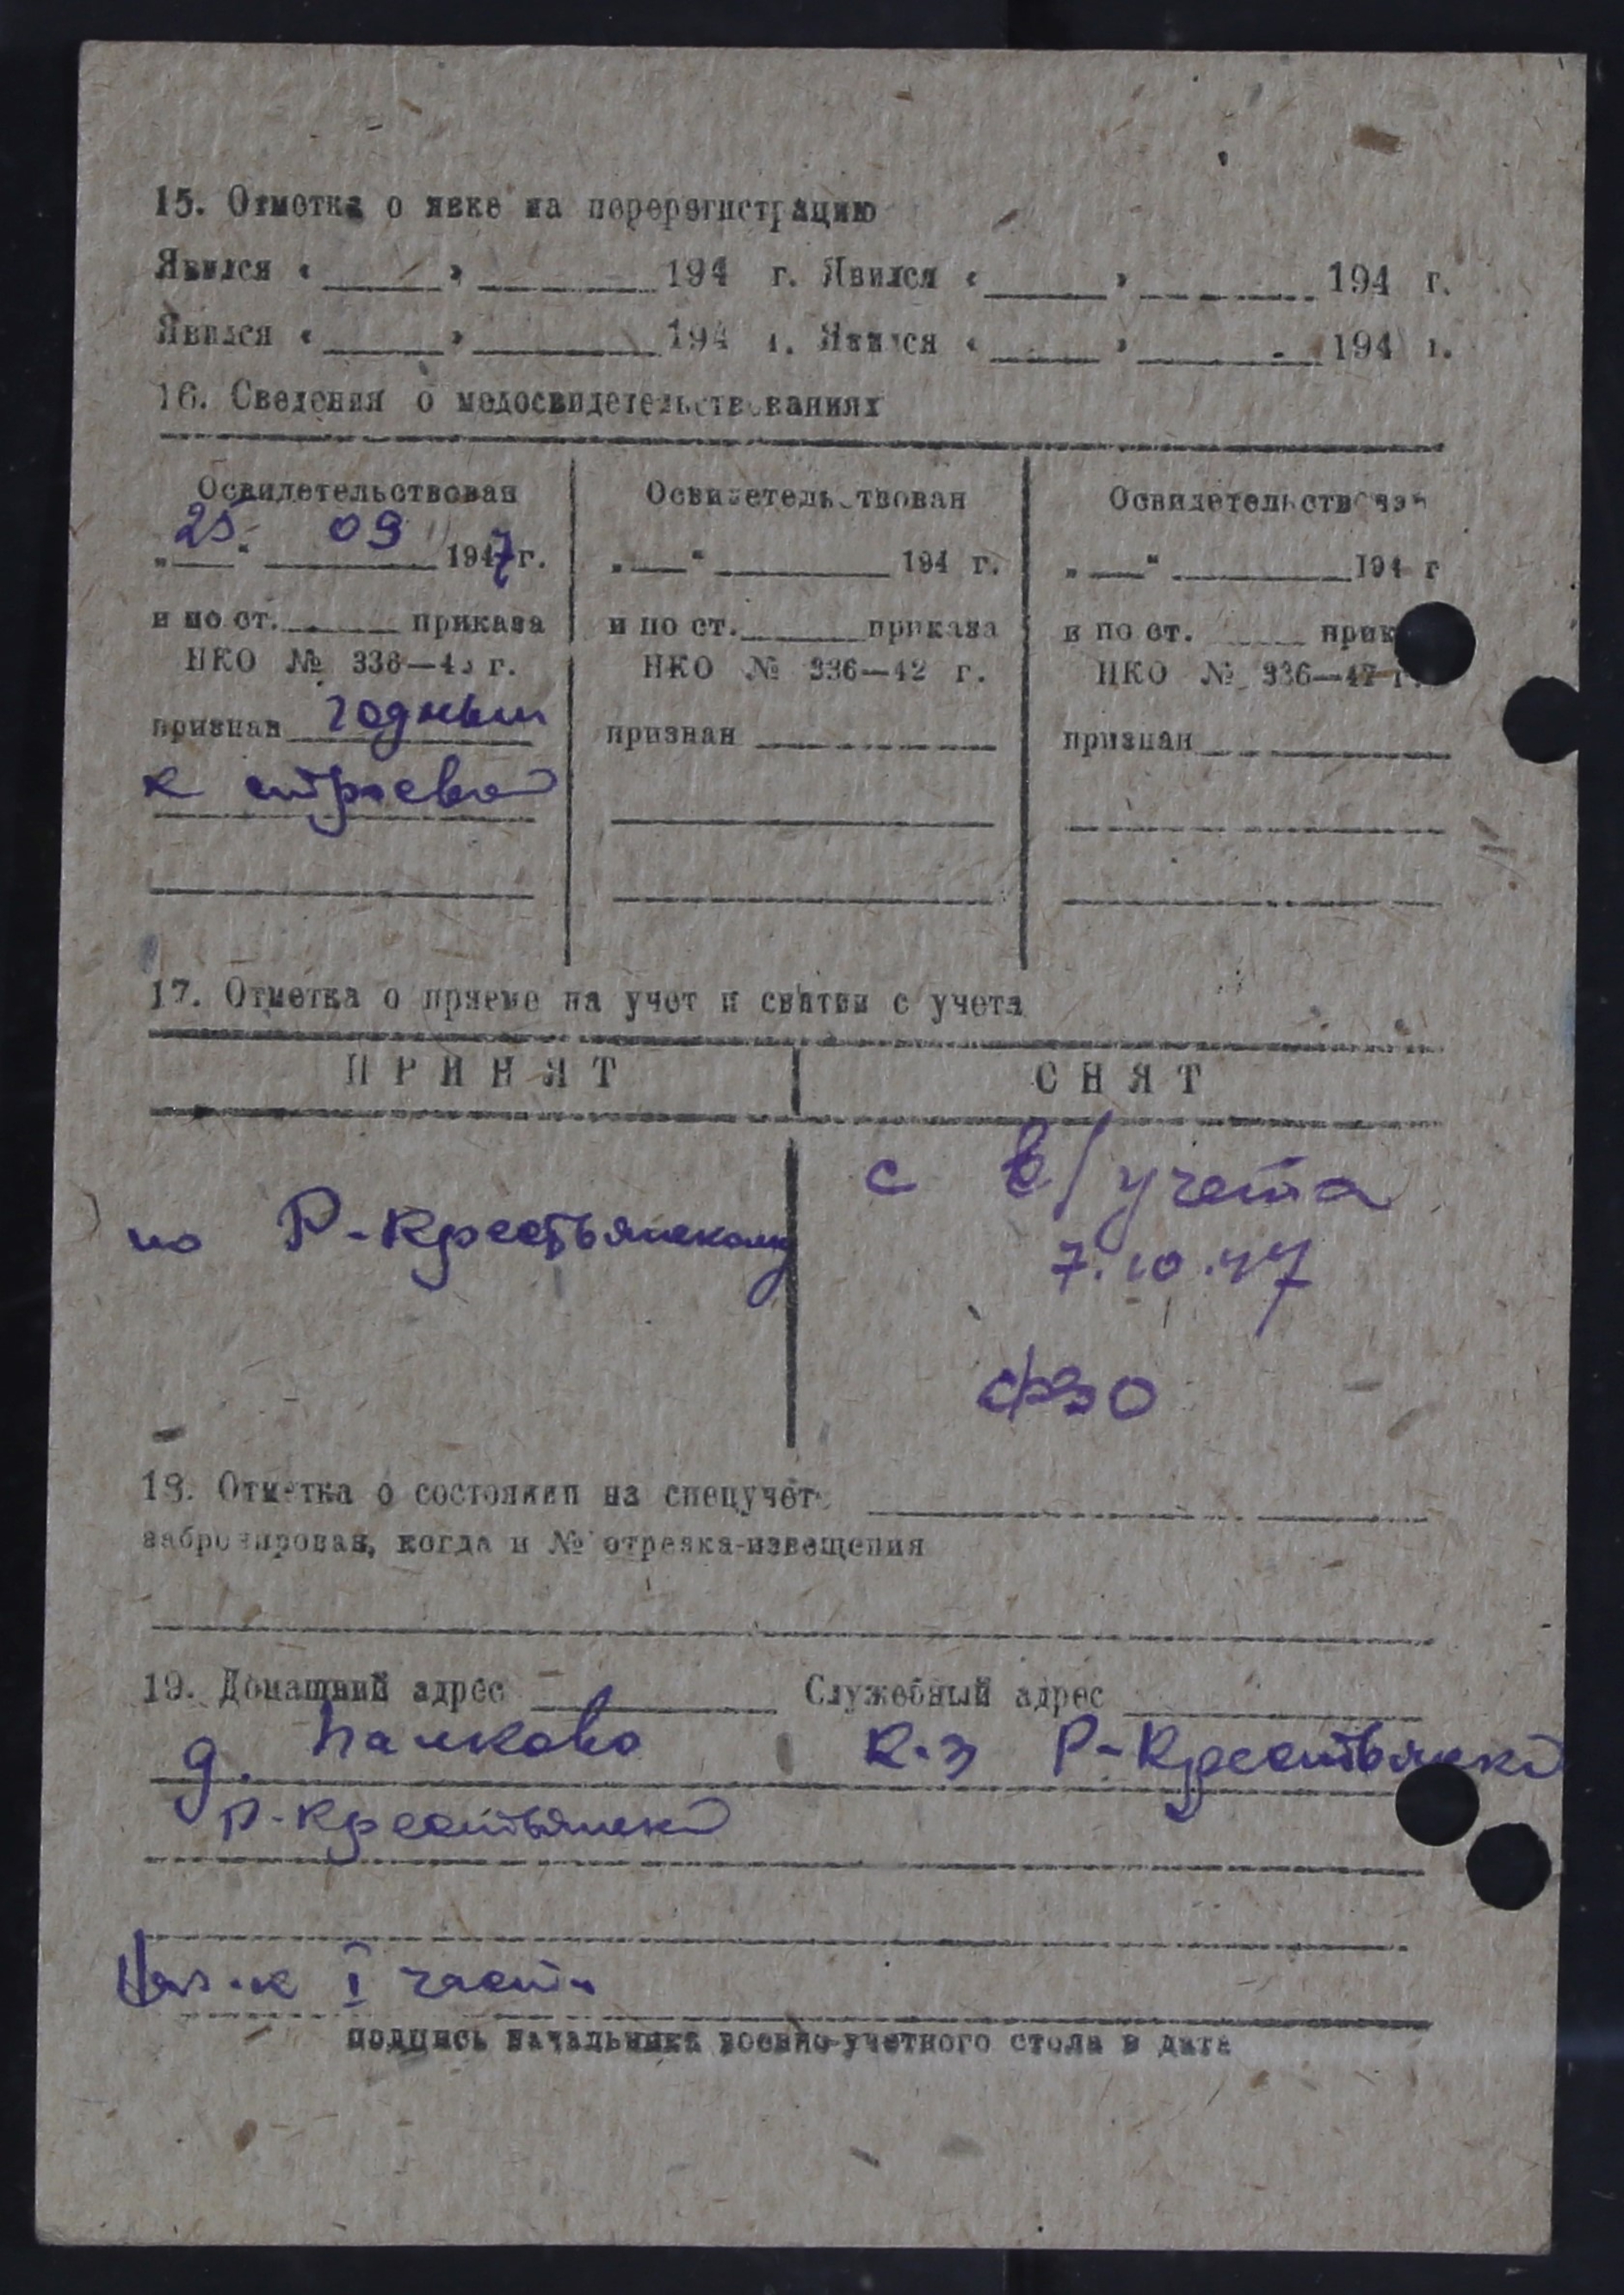 15. Отметка о явке на перерегистрацию
Явился « » 194 г. Явился « » 194 г.
Явился « » 194 г. Явился « » 194 г.
16. Сведения о медосвидетельствованиях
Освидетельствован Освидетельствован Освидетельствован
„25“ 09 1947 г. „ “ 194 г. „ “ 194 г
и по ст. приказа и по ст. приказа и по ст. прик
НКО № 336—42 г. НКО № 336—42 г. НКО № 336—42 г.
признан годным признан признан
к строевой
17. Отметка о приеме на учет и снятии с учета
ПРИНЯТ СНЯТ
с в/учета
по Р-Крестьянскому
7.10.47
ФЗО
18. Отметка о состоянии на спецучёте
забронирован, когда и № отрезка-извещения
19. Домашний адрес Служебный адрес
д. К-з Р-Крестьянский
Р-Крестьянский
Нач-к I части
подпись начальника военно-учетного стола и дата